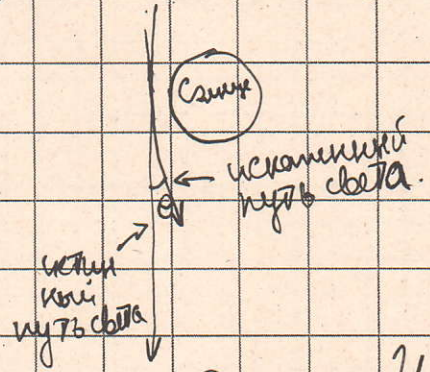 Солнце
искаженный
путь света.
θ
истин
ный
путь света